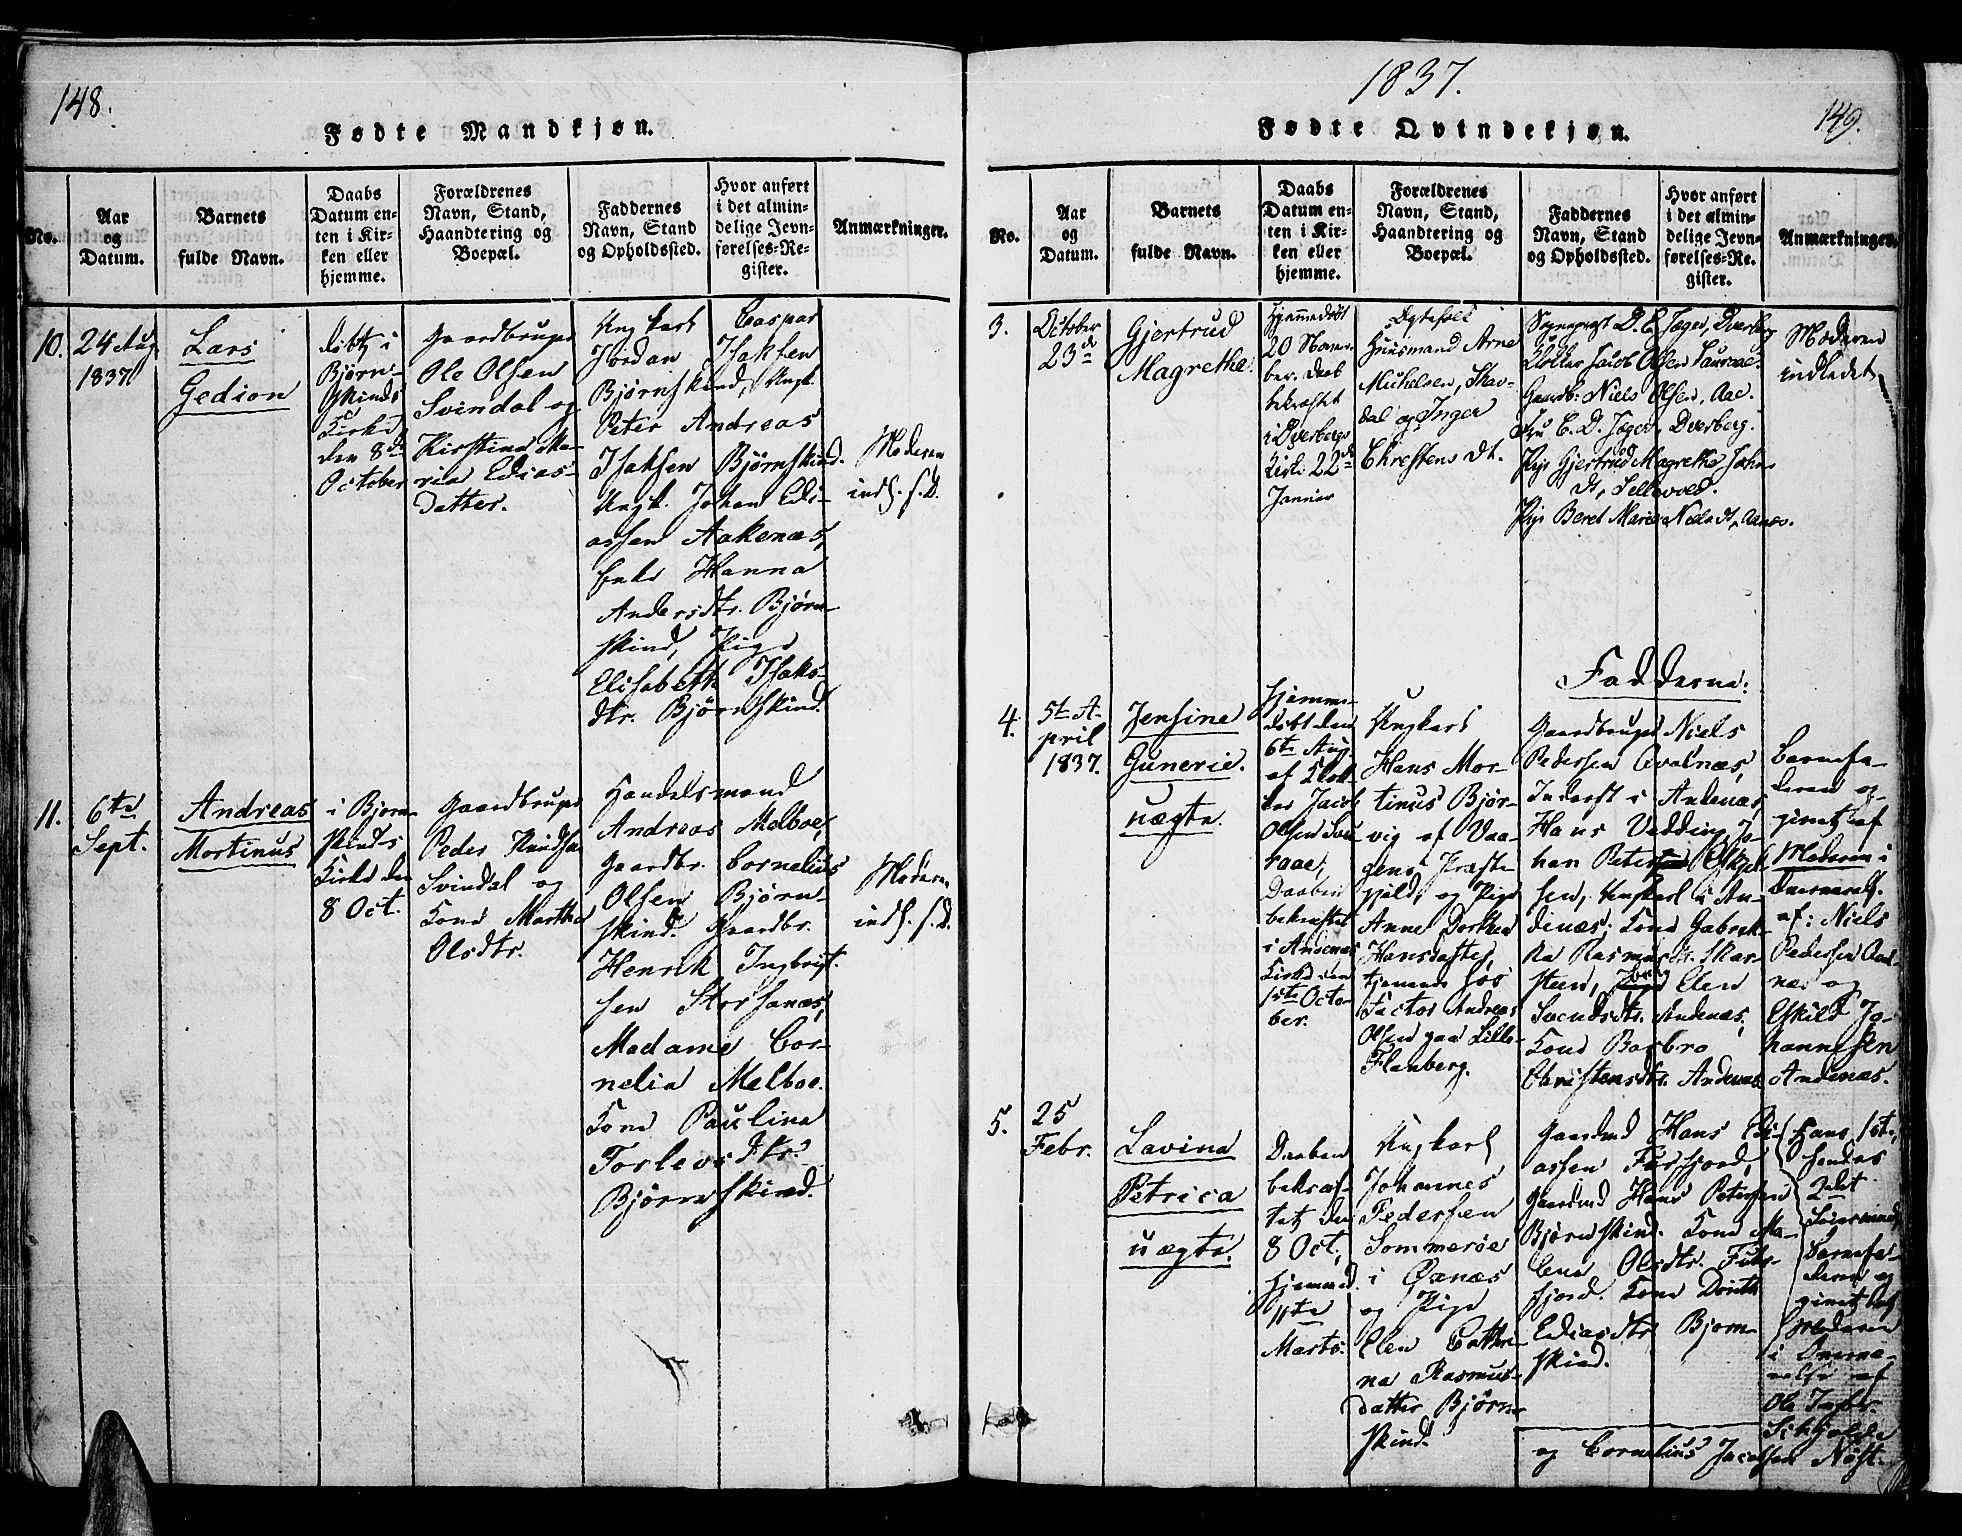 148.
Fødte Mandkjøn.
No.
Aar
og
Datum.
Barnets
fulde Navn.
Daabs
Datum en-
ten i Kir-
ken eller
hjemme.
Forældrenes
Navn, Stand,
Haandtering og
Boepæl.
Faddernes
Navn, Stand
og Opholdssted.
Hvor anført
i det almin-
delige Jevn-
førelses-Re-
gister.
Anmærkninger.
10.
24 Aug
1837
Lars
Gedion
døbt i
Bjørn-
skinds
Kirke
den 8de
October
Gaardbruger
Ole Olsen
Svindal og
Kirstine Ma-
ria Edias-
datter.
Ungkarl Caspar
Jordan Isaksen
Bjørnskind, Ungk.
Peter Andreas
Isaksen Bjørnskind.
Ungk. Johan Edi-
assen Aakenæs,
Enke Hanna
Andersdtr. Bjørn-
skind, Pige
Elisabeth Isaks-
dtr. Bjørnskind.
Moderen
indl. s. D.
11.
6te
Sept.
Andreas
Mortinus
i Bjørn-
skinds
Kirke den
8 Oct.
Gaardbruger
Peder Knudsen
Svindal og
Kone Martha
Olsdtr.
Handelsmand
Andreas Melboe,
Gaardbr. Cornelius
Olsen Bjørn-
skind. Gaardbr.
Henrik Ingbrigt-
sen Storsanæs,
Madame Cor-
nelia Melboe.
Kone Paulina
Torlevsdtr.
Bjørnskind.
Moderen
indl. s. D.
1837.
149.
Fødte Qvindekjøn.
No.
Aar
og
Datum.
Barnets
fulde Navn.
Daabs
Datum en-
ten i Kir-
ken eller
hjemme.
Forældrenes
Navn, Stand,
Haandtering og
Boepæl.
Faddernes
Navn, Stand
og Opholdssted.
Hvor anført
i det almin-
delige Jevn-
førelses-Re-
gister.
Anmærkninger.
3.
October
23d
Gjertrud
Magrethe.
Hjemmedøbt
20 Novem-
ber. Daab
bekræftet
i Dverbergs
Kirke 22de
Januar
Ægtefolk
Huusmand Arne
Michelsen, Skav-
dal og Inger
Christens dt.
Sognepræst D. C. Jæger, Dverberg
Klokker Jacob Olsen Sauraae-
Gaardb: Niels Olsen, Aae.
Fru C. D. Jæger, Dverberg.
Pige Gjertrud Magrethe Johns
dt, Sellevold.
Pige Beret Maria Niels dt,
Moderen
indledet
Fadderne:
4.
5te A-
pril
1837.
Jensine
Gunerie.
uægte.
Hjemme-
døbt den
6te Aug.
af Klok-
ker Jacob
Olsen Sau
raae,
Daaben
bekræftet
i Andenæs
Kirke den
1ste Octo-
ber.
Ungkarl
Hans Mor-
tinus Bjør-
vig af Vaa-
gens Præste-
gjæld, og Pige
Anne Dorthea
Hansdatter,
tjenende hos
Factor Andreas
Olsen paa Lille-
Flanberg.
Gaardbruger Niels
Pedersen Qvalnæs,
Inderst i Andenæs,
Hans Vedding, Jo-
han Petersen Eskel-
sen, Ungkarl i An-
denæs; Kone Gabrik-
ka Rasmusdtr. Skar-
steen, Elen
Svendsdtr. Andenæs,
Kone Barbro
Christensdtr. Andenæs
Barnefa-
deren og-
givet af
Moderen i
Overværelse
af: Niels
Pedersen Qval-
næs og
Eskild Jo-
hannesen
Andenæs.
5.
25
Febr.
Lavina
Petrica
uægte.
Daaben
bekræf-
tet den
8 Oct,
hjemmed.
11te
Marts.
Ungkarl
Johannes
Pedersen
Sommerøe
i Øxnæs
og Pige
Elen Cathri-
na Rasmus-
datter Bjørn-
skind.
Gaardmd Hans Edi-
assen Forfjord,
Gaardmd Hans Petersen
Bjørnskind. Kone Ma-
lena Olsdtr. Fors-
fjord. Kone Dorith
Ediasdtr Bjørn-
skind.
Hans 1ste,
hendes
2det
Leiermaal,
Barnefa-
deren og
givet af
Moderen
i Overvæ-
relse af
Ole Ingbr.
Schjolde
og Cornelius Jacobsen Nøst-